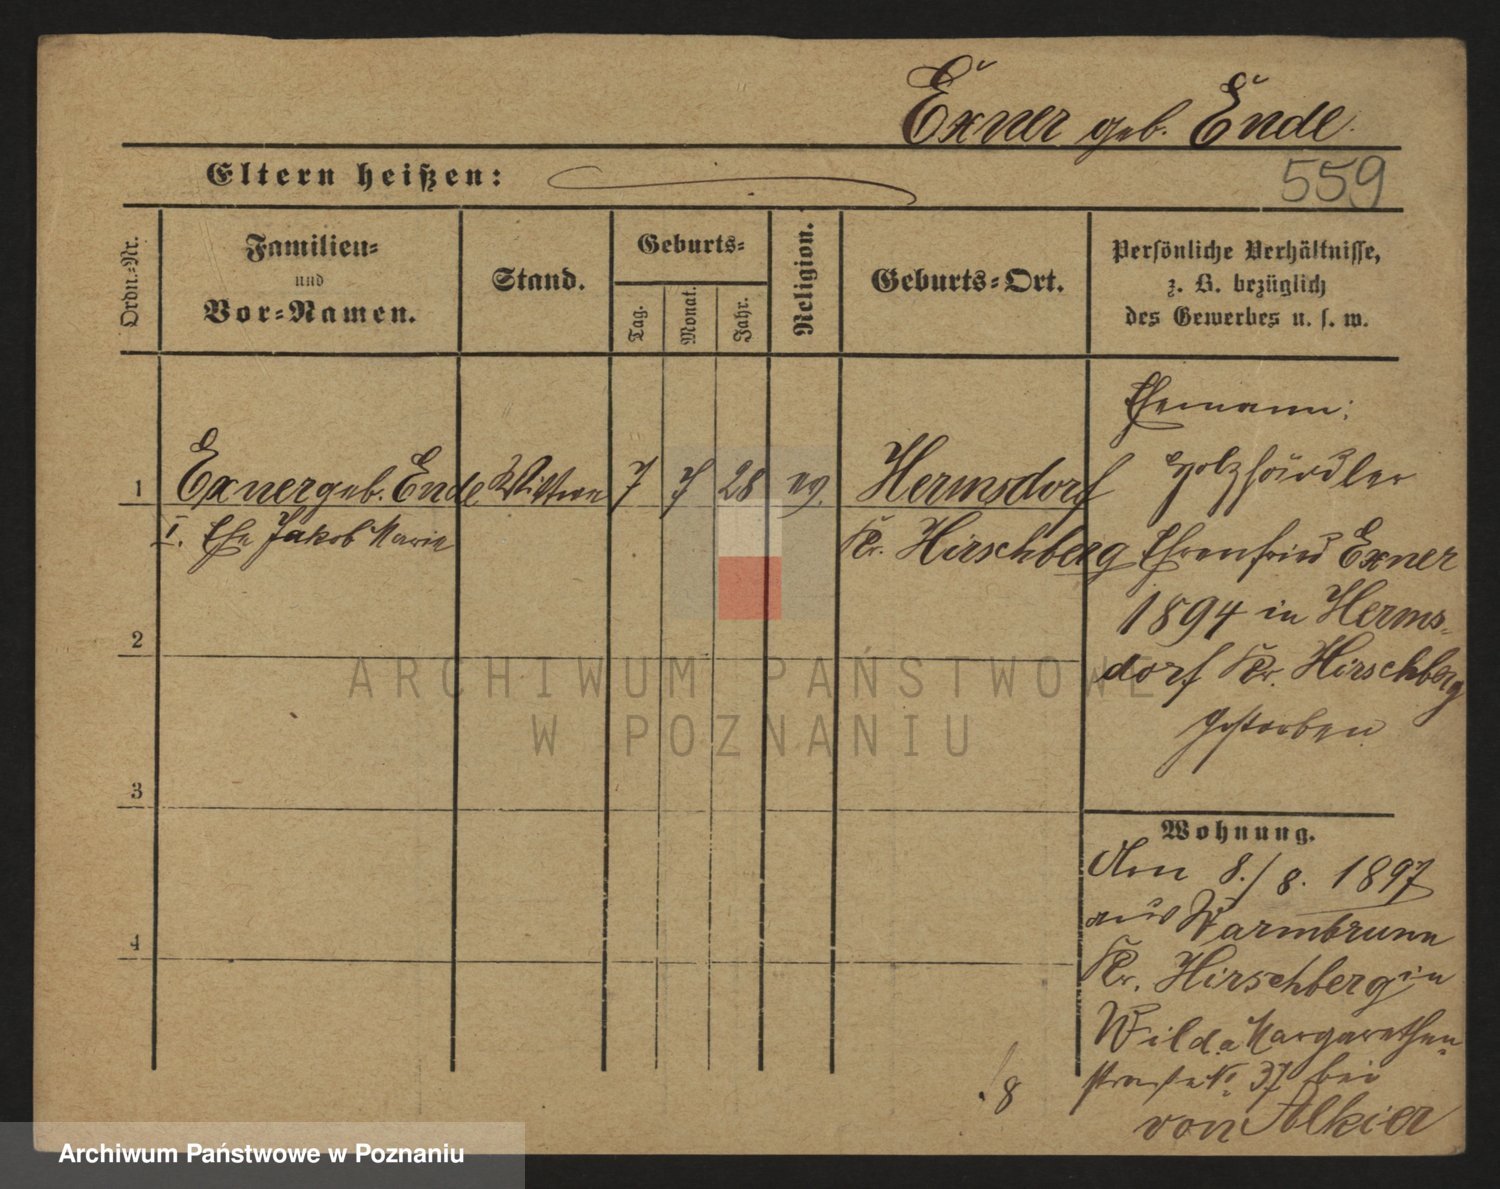 Exner geb. Ende.
559
Eltern heißen:
Ordn.-Nr.
Familien-
und
Vor-Namen.
Stand.
Geburts-
Tag.
Monat.
Jahr.
Religion.
Geburts-Ort.
Persönliche Verhältnisse,
z. B. bezüglich
des Gewerbes u. s. w.
1
Exner geb. Ende Wittwe 7 7 28 ev. Hermsdorf
I. Ehe Jakob Marie
Kr. Hirschberg
Ehemann:
Holzhändler
Ehrenfried Exner
1894 in Herms-
dorf Kr. Hirschberg
gestorben
2
3
4
Wohnung.
Am 8./8. 1897
aus Warmbrunn
Kr. Hirschberg in
Wilda Margarethen-
straße No. 37 bei
von Alkier
8
ARCHIWUM PAŃSTWOWE
W POZNANIU
Archiwum Państwowe w Poznaniu